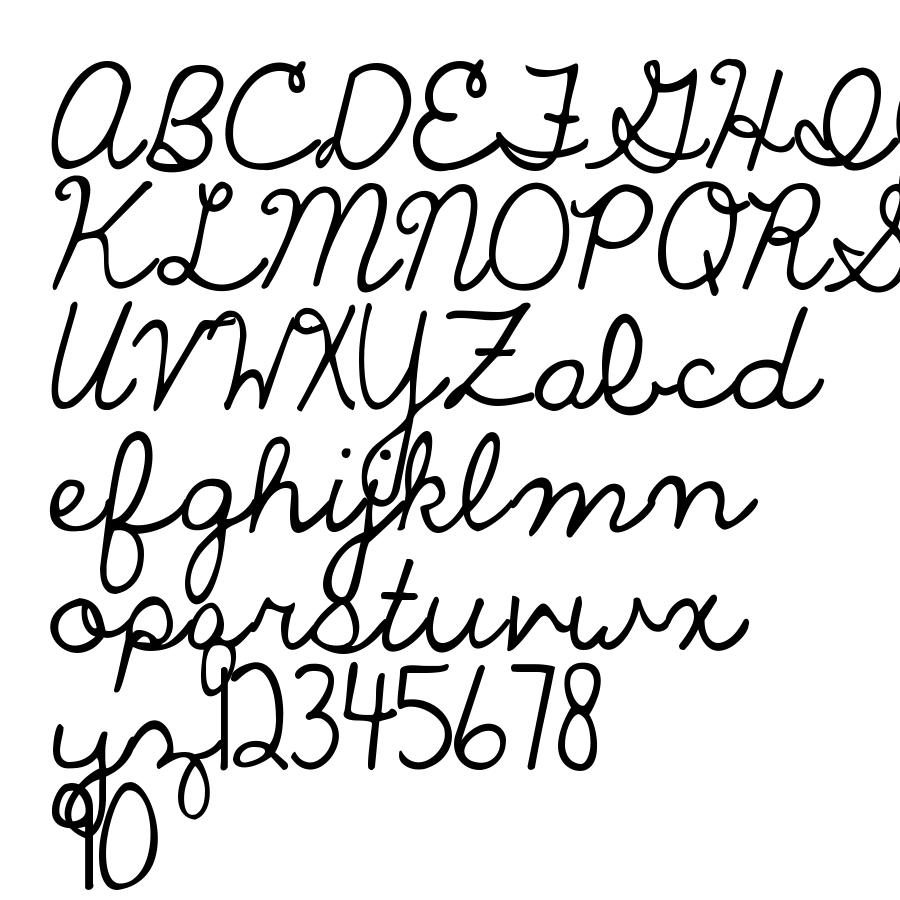 ABCDEFGHI
KLMNOPQRS
UVWXYZabcd
efghijklmn
opqrstuvwx
yz12345678
90